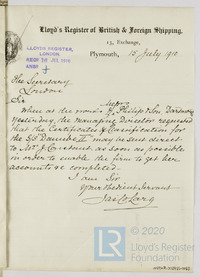 Lloyd's Register of British & Foreign Shipping,
13, Exchange,
Plymouth, 15 July 1910
LLOYDS REGISTER,
LONDON.
REC'D 16 JUL 1910
ANSD
The Secretary
London
Sir
When at the works of Messrs Philip & Son Dartmouth
yesterday, the managing Director requested
that the Certificates of Classification for
the SS may be sent direct
to Mr. J. as soon as possible
in order to enable the firm to get her
accounts completed.
I am Sir
Your obedient Servant
© 2020
Lloyd's Register
Foundation